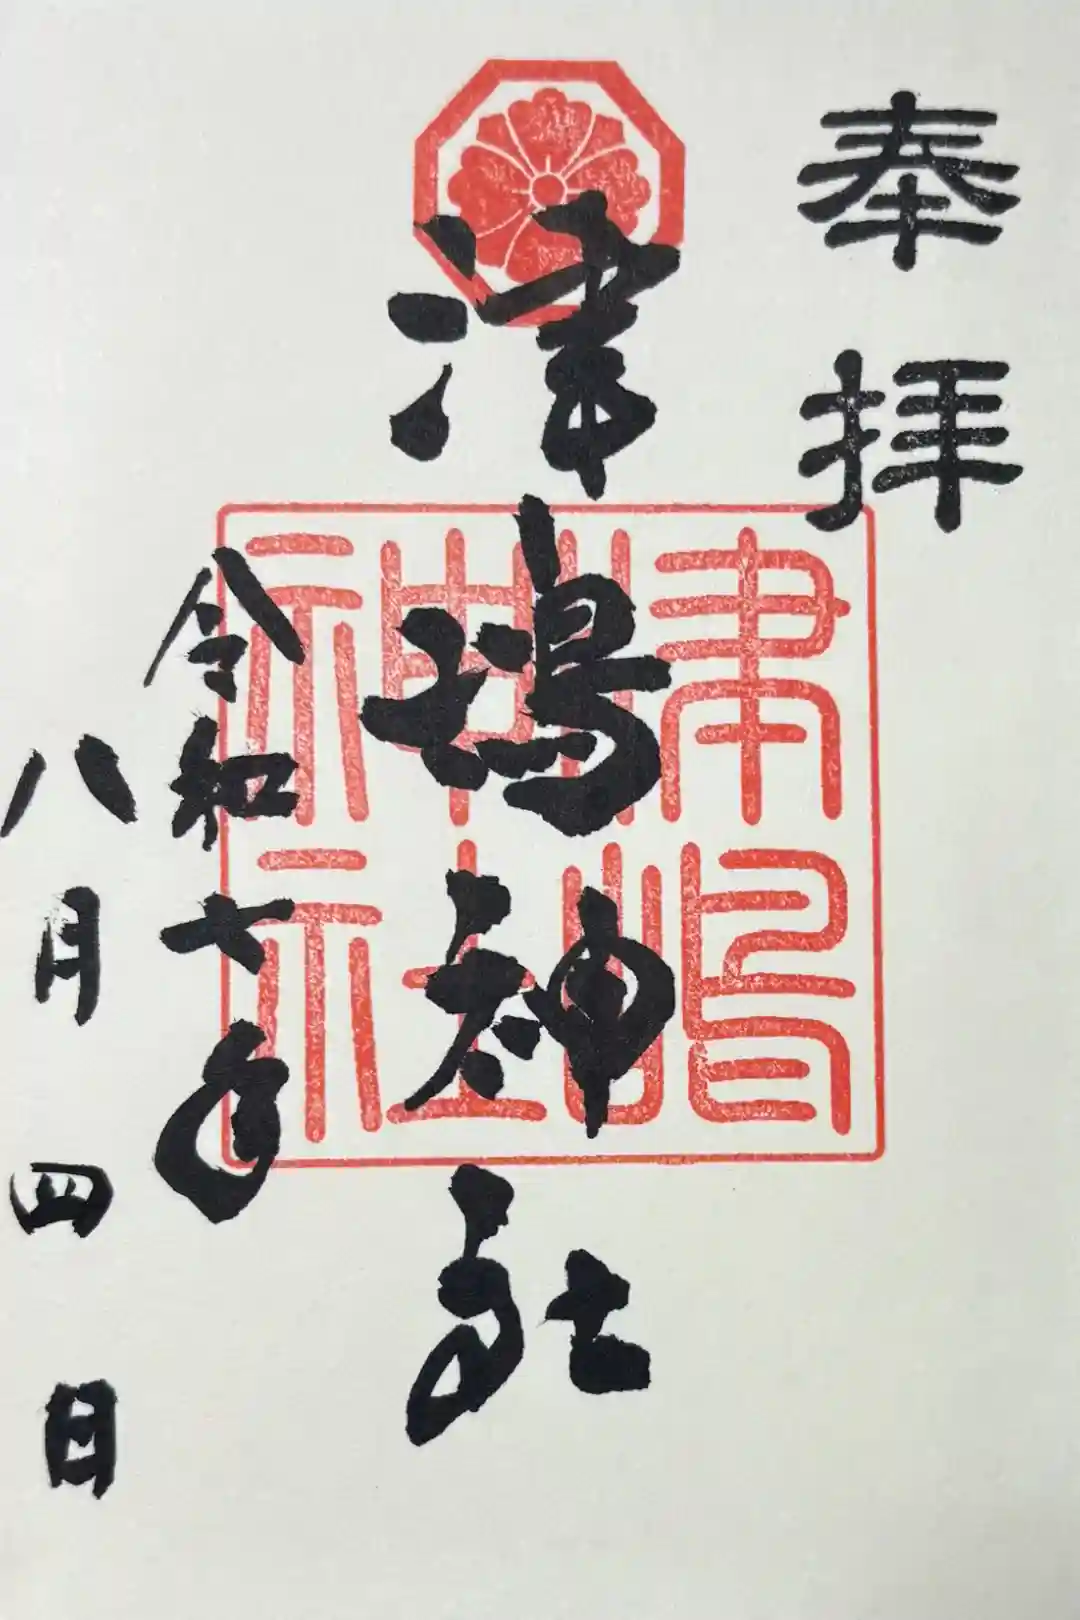 奉拝
津嶋神社
令和七年
八月四日
津嶋
神社